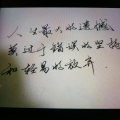 人生最大的遗憾,
莫过于错误的坚持
和轻易的放弃.